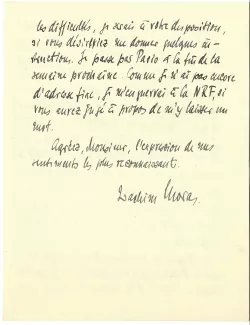 les difficultés, je serais à votre disposition,
si vous désiriez me donner quelques in-
structions. Je passe par Paris à la fin de la
semaine prochaine. Comme je n'ai pas encore
d'adresse fixe, je m'enquerrai à la NRF, si
vous aurez jugé à propos de m'y laisser un
mot.
Agréez, Monsieur, l'expression de mes
sentiments les plus reconnaissants.
Joachim Moras